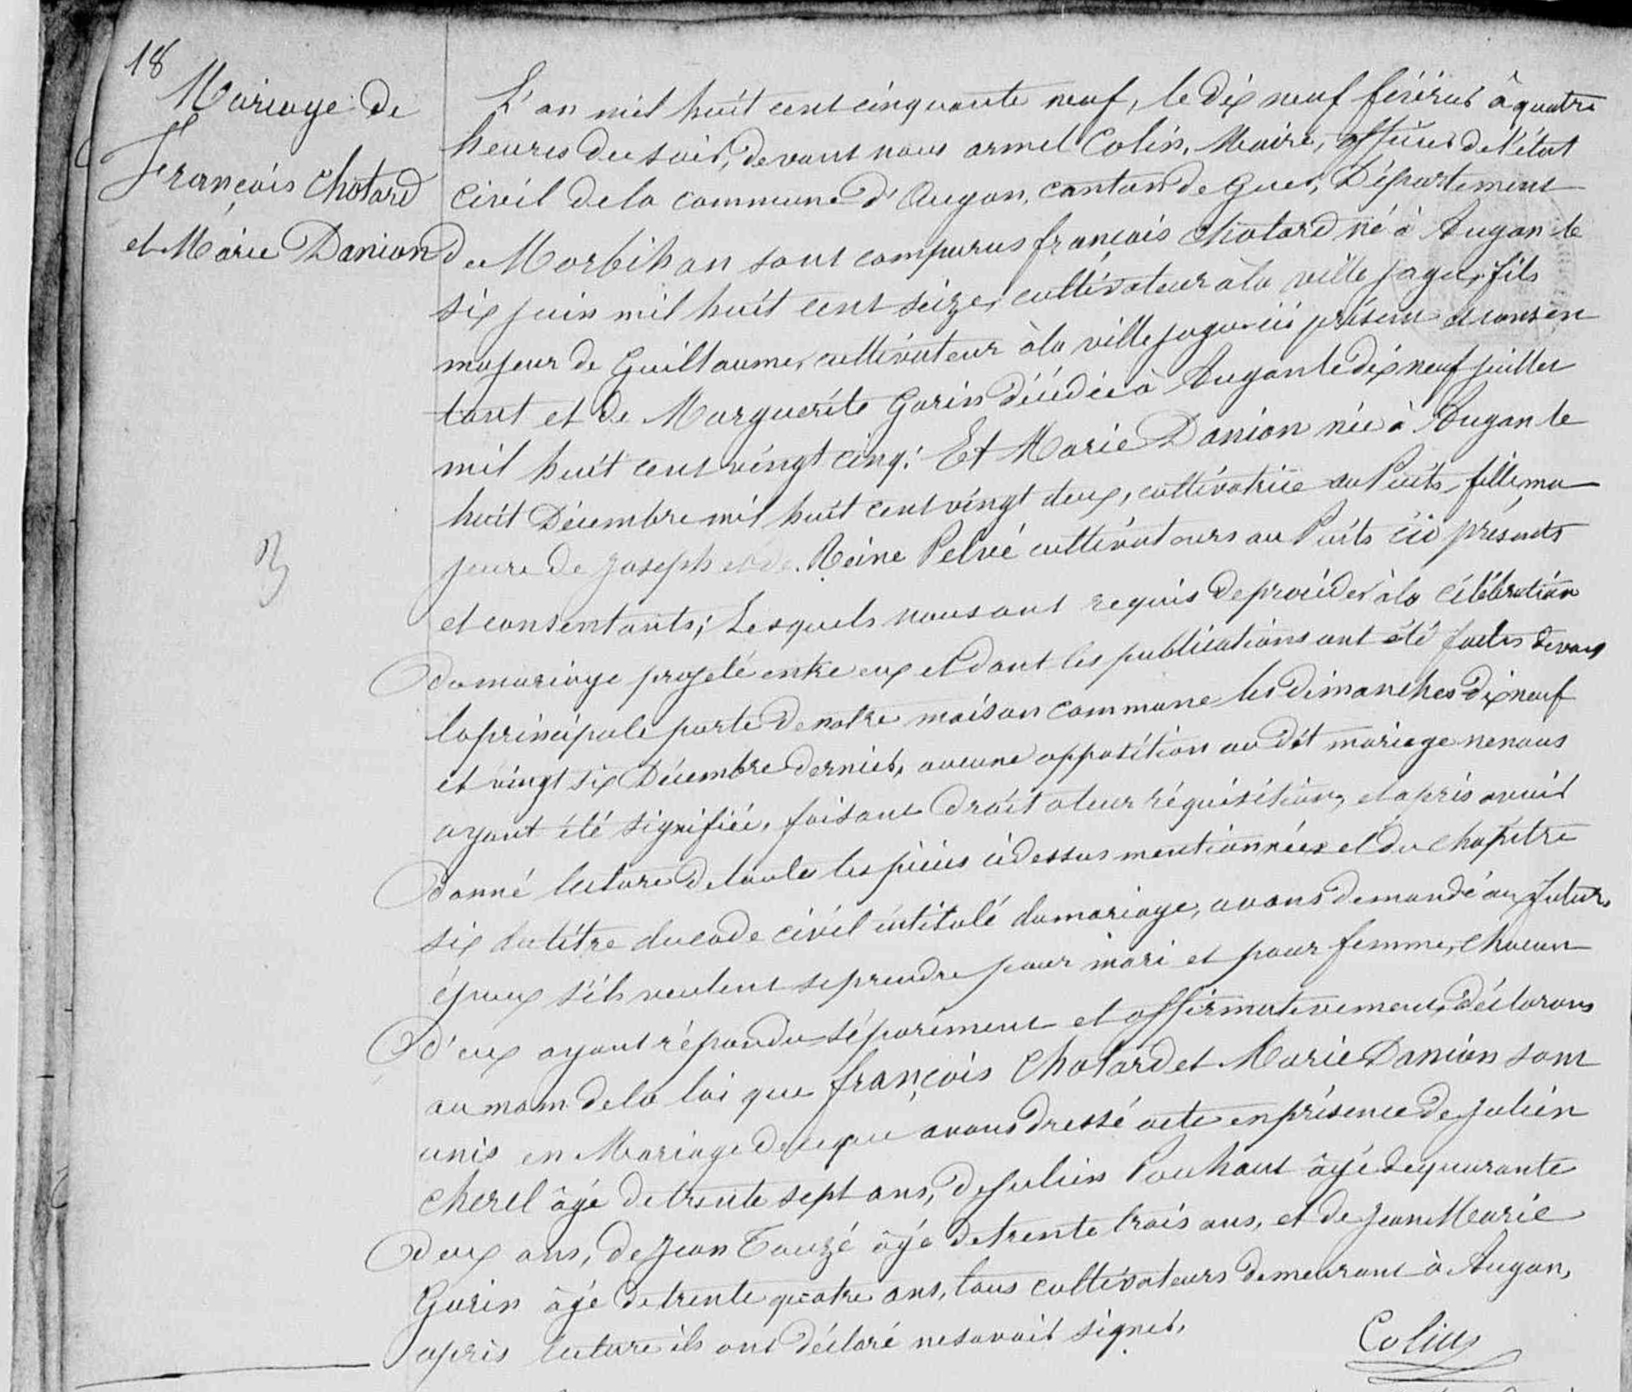 18
Mariage de
François Chotard
et Marie Danion
L'an mil huit cent cinquante neuf, le dix neuf février à quatre
heures du soir, devant nous armel Colin, Maire, officier de l'état
civil de la commune d'Augan, canton de Guer, Département
du Morbihan sont comparus françois Chotard né à Augan le
six juin mil huit cent seize, cultivateur à la ville jagu, fils
majeur de Guillaume, cultivateur à la ville jagu ici présent et consen
tant et de Marguerite Garin décédée à Augan le dix neuf juillet
mil huit cent vingt cinq; Et Marie Danion née à Augan le
huit Décembre mil huit cent vingt deux, cultivatrice au Puits, fille ma
jeure de Joseph et de Reine Pelvé cultivateurs au Puits ici présents
et consentants; Lesquels nous ont requis de procéder à la célébration
du mariage projeté entre eux et dont les publications ont été faites devant
la principale porte de notre maison commune les dimanches dix neuf
et vingt six Décembre dernier, aucune opposition au dit mariage ne nous
ayant été signifiée, faisant droit à leur réquisition, et après avoir
donné lecture de toutes les pièces ci dessus mentionnées et du chapitre
six du titre du code civil intitulé du mariage, avons demandé aux futurs
époux s'ils veulent se prendre pour mari et pour femme, chacun
d'eux ayant répondu séparément et affirmativement, déclarons
au nom de la loi que françois Chotard et Marie Danion sont
unis en Mariage de ce que avons dressé acte en présence de Julien
Cherel âgé de trente sept ans, de Julien Pouhaut âgé de quarante
deux ans, de Jean Touzé âgé de trente trois ans, et de Jean Marie
Garin âgé de trente quatre ans, tous cultivateurs demeurant à Augan,
après lecture ils ont déclaré ne savoir signer.
Colin